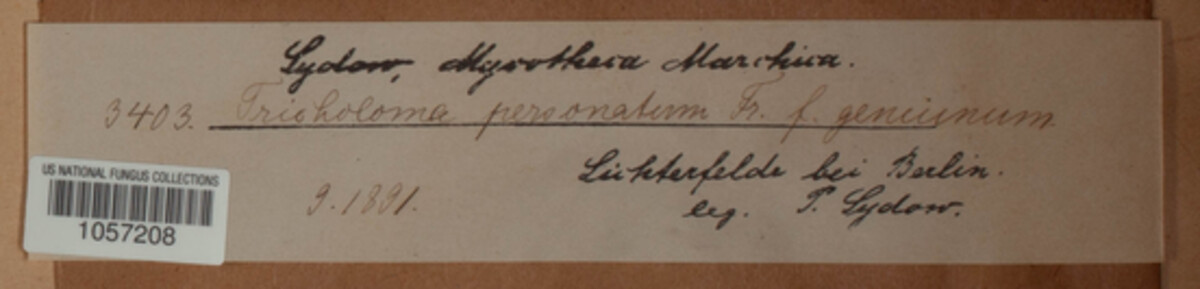 Sydow, Mycotheca Marchica.
3403. Tricholoma personatum Fr. f. genuinum.
Lichterfelde bei Berlin.
9.1891.
leg. P. Sydow.
US NATIONAL FUNGUS COLLECTIONS
1057208